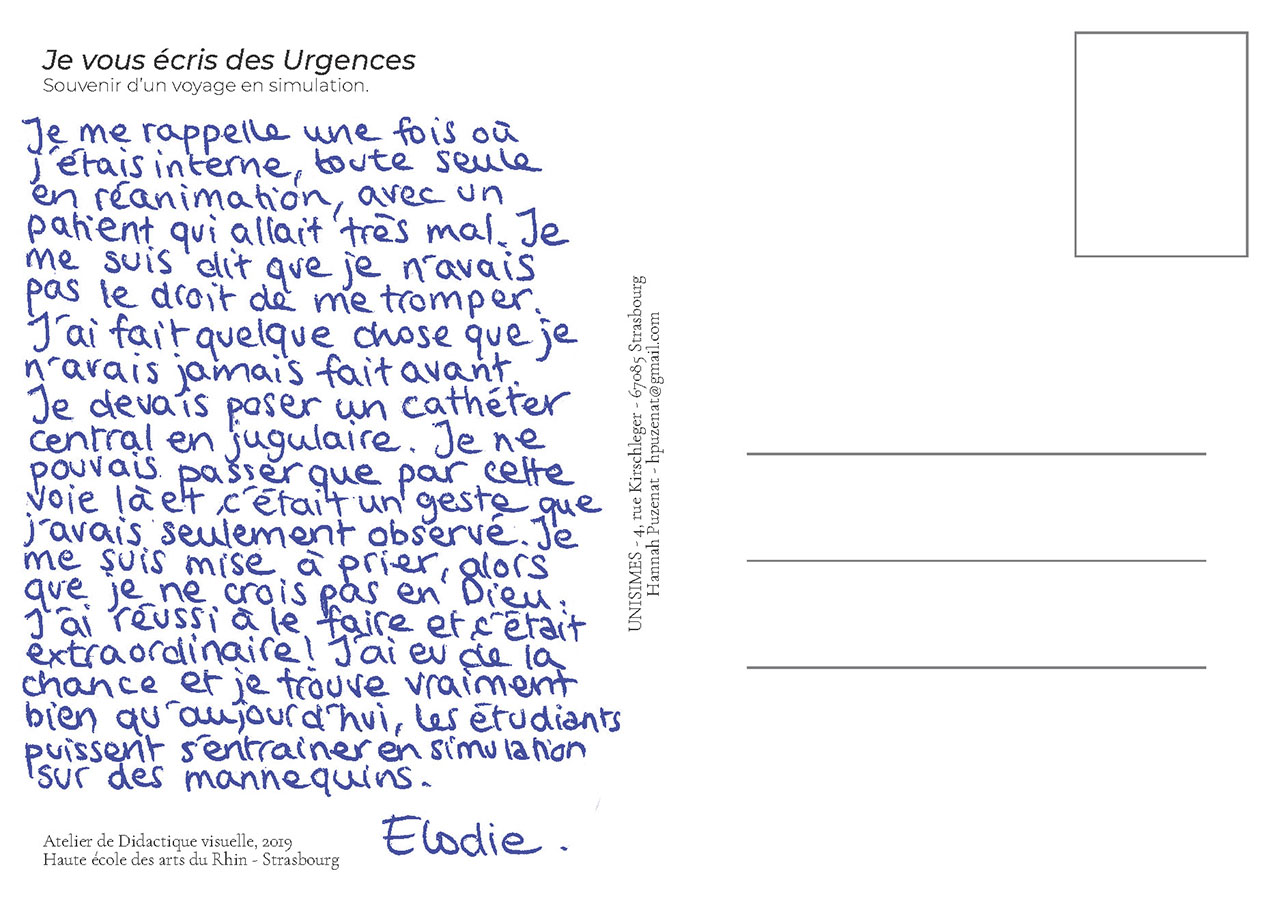 Je vous écris des Urgences
Souvenir d'un voyage en simulation.
Je me rappelle une fois où
j'étais interne, toute seule
en réanimation, avec un
patient qui allait très mal. Je
me suis dit que je n'avais
pas le droit de me tromper.
J'ai fait quelque chose que je
n'avais jamais fait avant.
Je devais poser un cathéter
central en jugulaire. Je ne
pouvais passer que par cette
voie là et c'était un geste que
j'avais seulement observé. Je
me suis mise à prier, alors
que je ne crois pas en Dieu.
J'ai réussi à le faire et c'était
extraordinaire! J'ai eu de la
chance et je trouve vraiment
bien qu'aujourd'hui, les étudiants
puissent s'entrainer en simulation
sur des mannequins.
Elodie.
Atelier de Didactique visuelle, 2019
Haute école des arts du Rhin - Strasbourg
UNISIMES - 4, rue Kirschleger - 67085 Strasbourg
Hannah Puzenat - hpuzenat@gmail.com